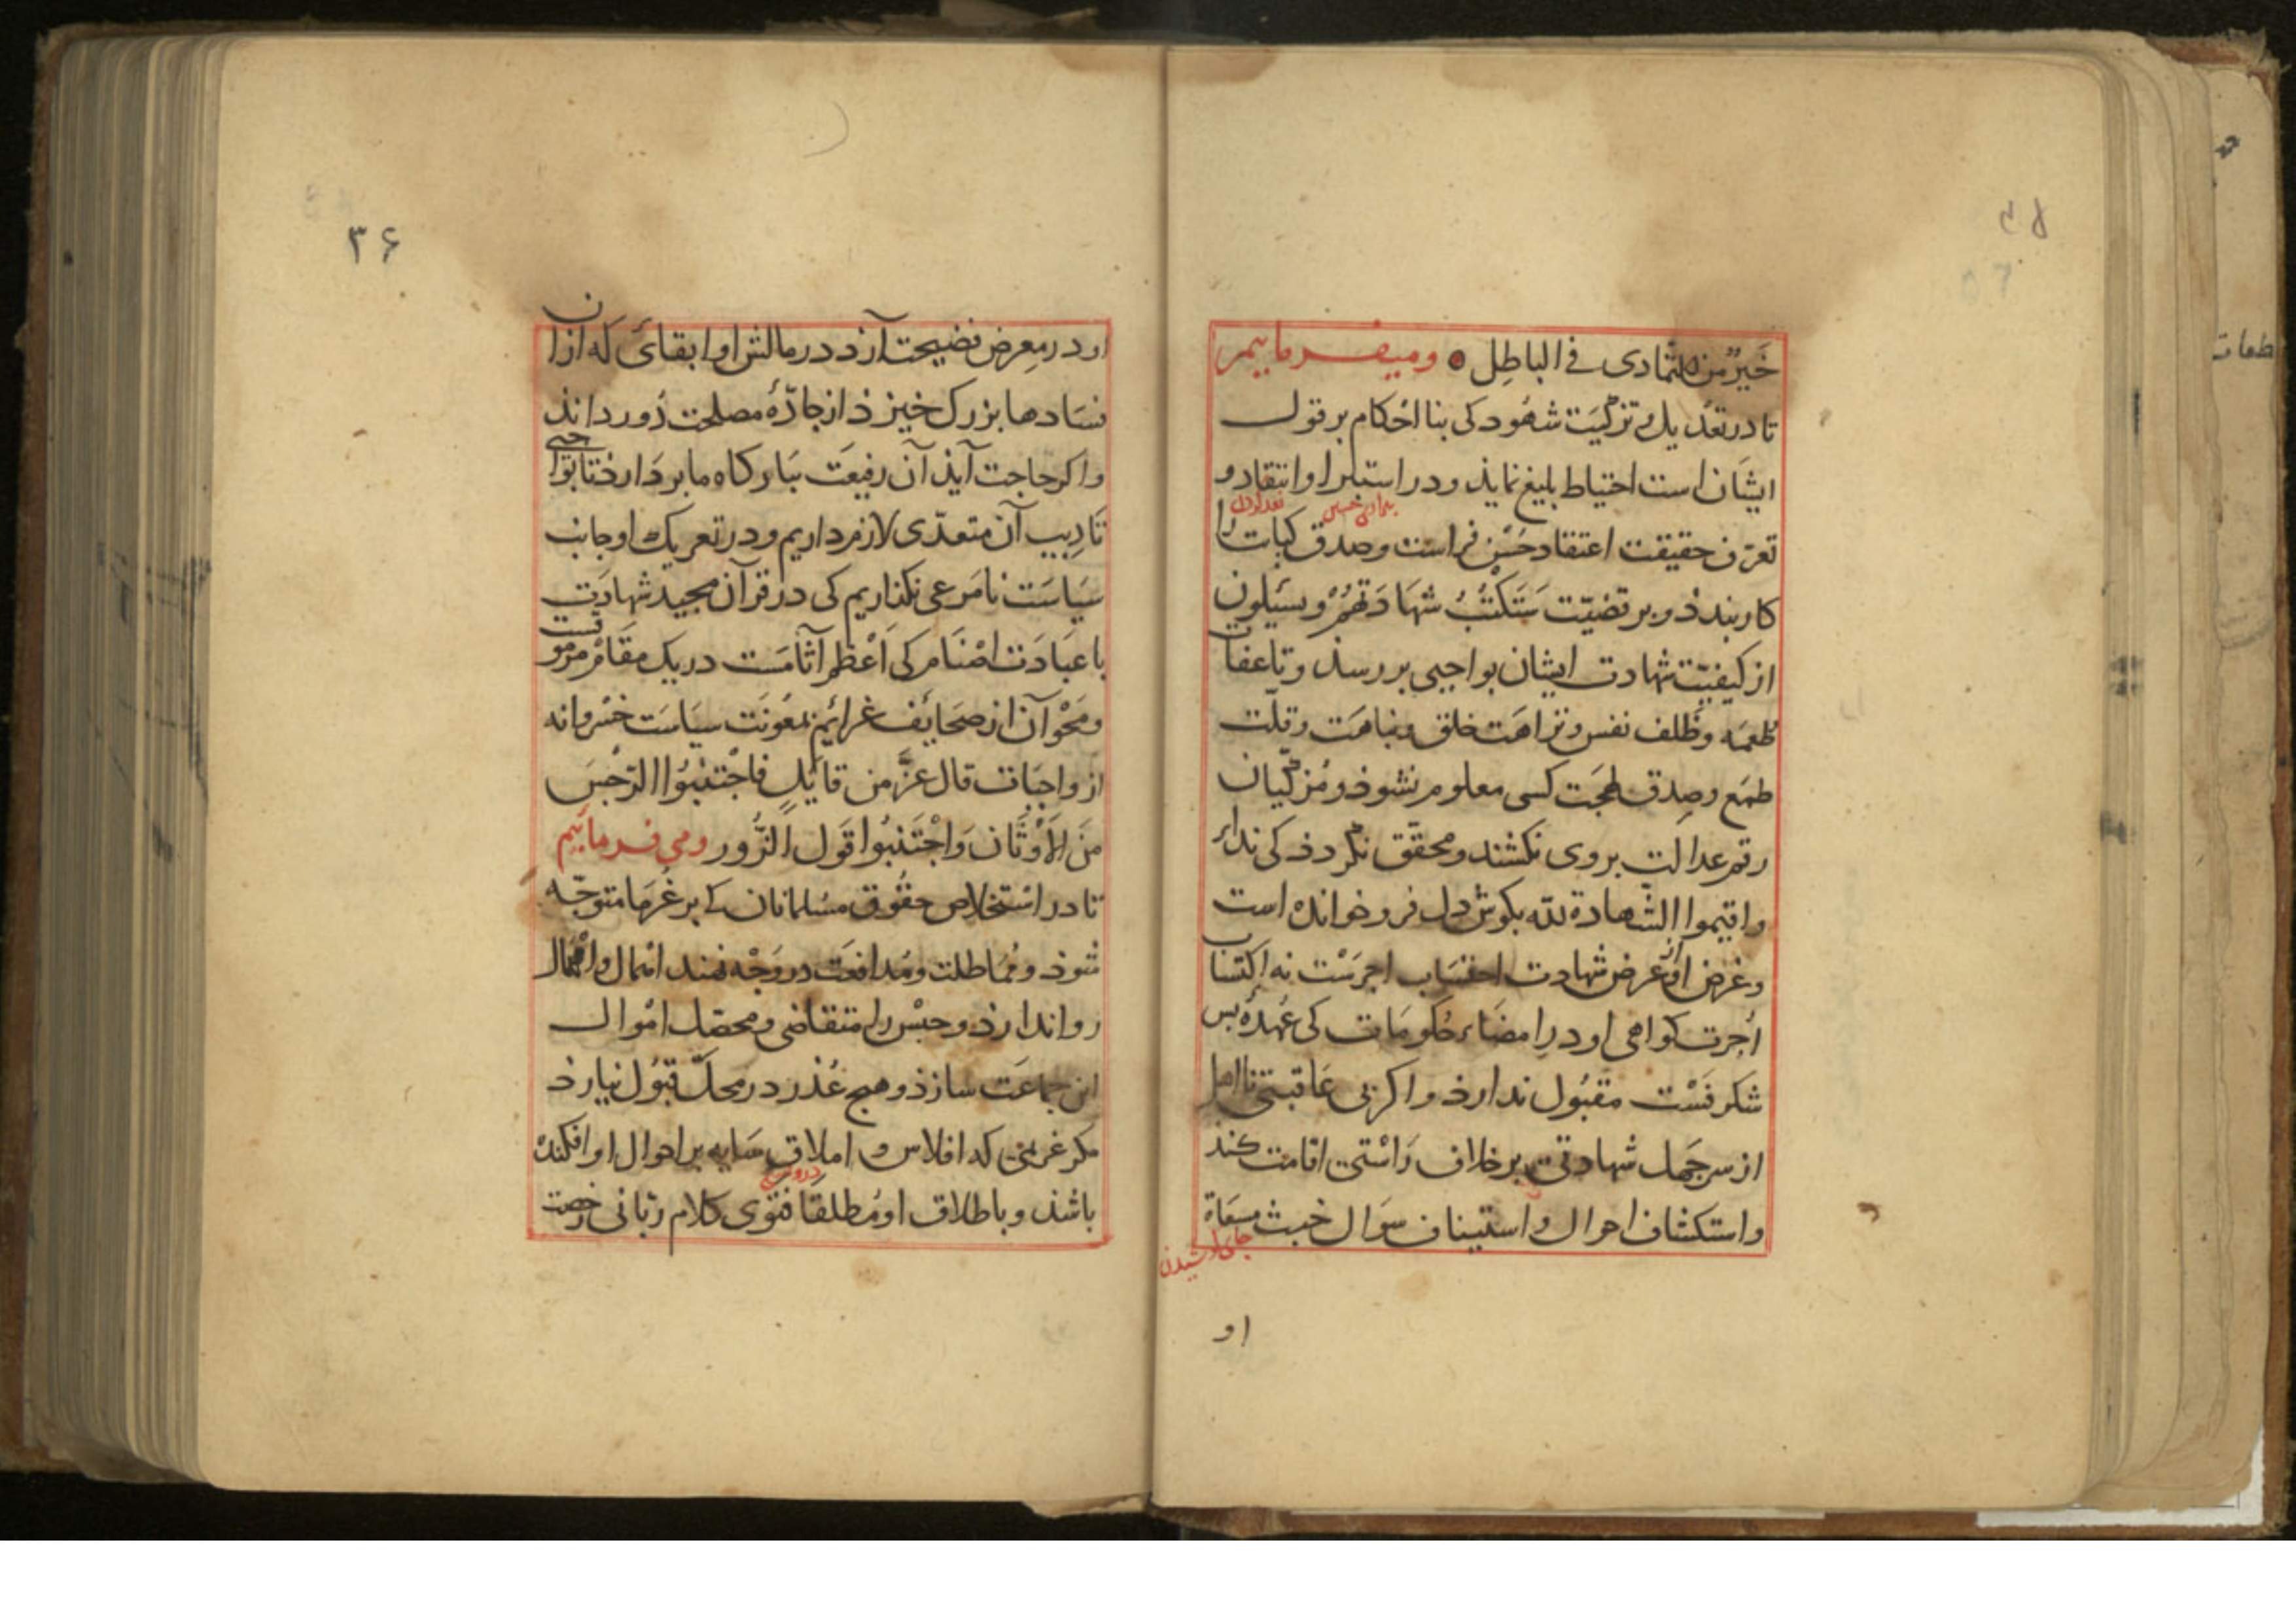 خَیرٌ من التمادی فی الباطِل ومیفرماییم
تا در تعدیل و تزکیَت شهُود کی بنا احْکام بر قول
ایشان است احتیاط بلیغ نماید و در استبرا و انتقاد و
تعرّف حقیقت اعتقاد حُسْن فراست و صدق کیاست را
کار بندد و بر قضیّت سَتَکْتَبُ شهَادَتهُمْ ویسئلون
از کیفیّت شهادت ایشان بواجبی بررسد و تا عفاف
طُعمَه و ظَلف نفس و نزاهَت خلق و نباهَت و قلّت
طمَع و صِدق لهجَت کسی معلوم نشود و مُزَکّیان
رقم عدالت بر وی نکشند و محقّق نگردد کی نداء
واقیموا الشّهادة لله بکوش دل فرو خوانده است
وغرض او از عرض شهادت احتسَاب اجرَسْت نه اکتساب
اُجرت کواهی او در امضَاء حکومَات کی عُهدهٔ بس
شکرفَسْت مقبُول ندارد و اکر بی عَاقبتی نااهل
از سر جَهل شهادتی بر خلاف رَاسْتی اقامت کند
واستکشاف احوال و استیناف سؤال خبث مسعَاة
او
۳۶
او در معرِض فضیحت آرد در مالش او ابقائ که ازان
فسَادها بزرک خیزد از جادّهٔ مصلحت دُور داند
واکر حاجت آید آن رفیعَت ببَارکاه ما بردارد تا بواجبی
تَادِیب آن متعدّی لازم داریم و در تعریک او جانب
سیَاسَت نامَرعی نکذاریم کی در قرآن مجید شهادَت
با عبَادَت اصْنَام کی اَعْظم آثامَست در یک مقَام مرموقست
ومَحْو آن از صَحَایف غرائم بمعُونَت سیَاسَت خسْروانه
از واجبَات قال عَزَّ من قایلٍ فاجْتنبُوا الرّجْسَ
مِنَ الاَوْثَان وَاجْتَنبُوا قَول الزُّور ومی فرماییم
تا در اسْتخلاص حقُوق مسْلمانان کی بر غُرَمَا متوجّه
شود و مُمَاطلت و مُدافعَت در وَجْه نهند امْهال و اهْمال
روا ندارد و حبْس را متقاضی و محصّل امْوال
ان جماعَت سازد و هیچ عُذر در محلّ قبُول نیارد
مکر غریمی که افلاس و املاق سَایه بر احوال او افکنده
باشد و باطلاق او مُطلقَا فتوی کلام ربّانی رخصت